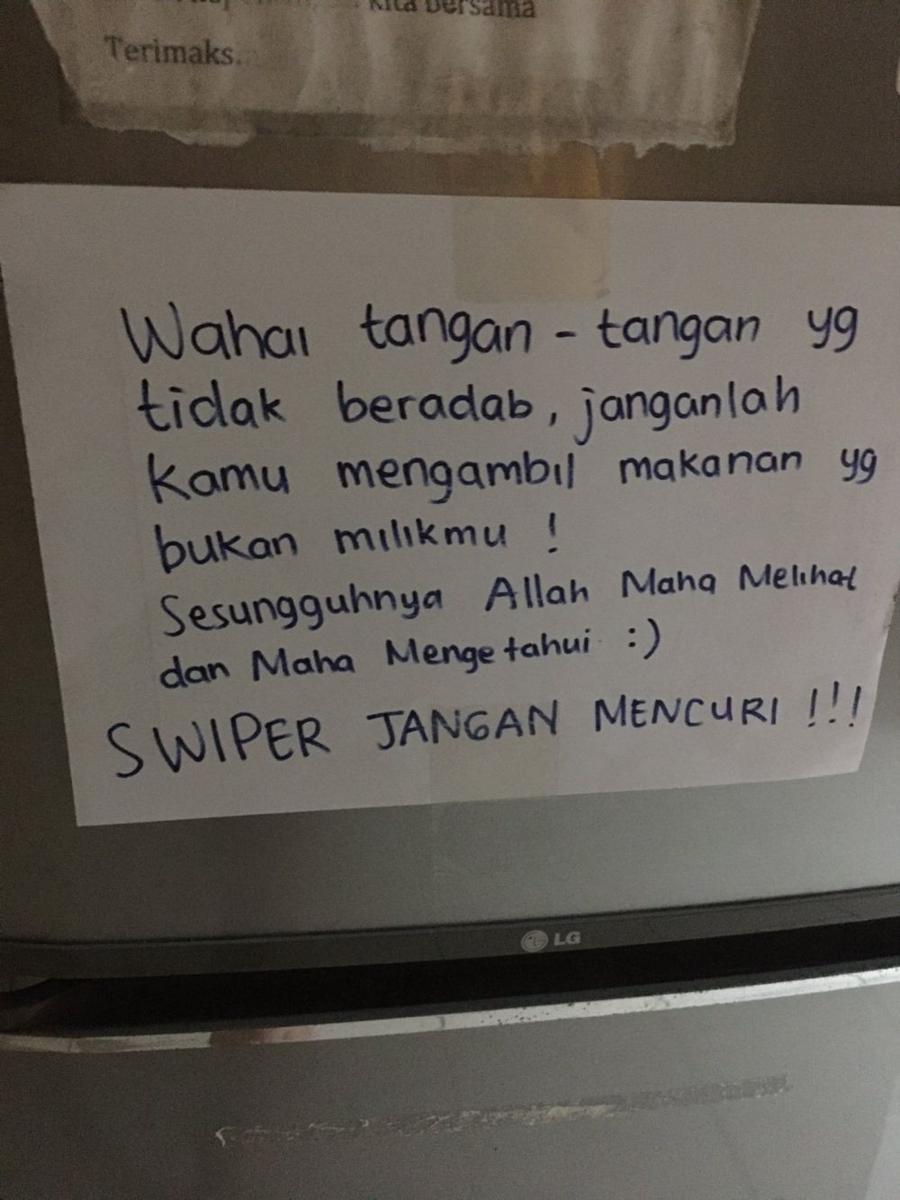 kita bersama
Terimaks..
Wahai tangan - tangan yg
tidak beradab, janganlah
kamu mengambil makanan yg
bukan milikmu !
Sesungguhnya Allah Maha Melihat
dan Maha Mengetahui :)
SWIPER JANGAN MENCURI !!!
LG